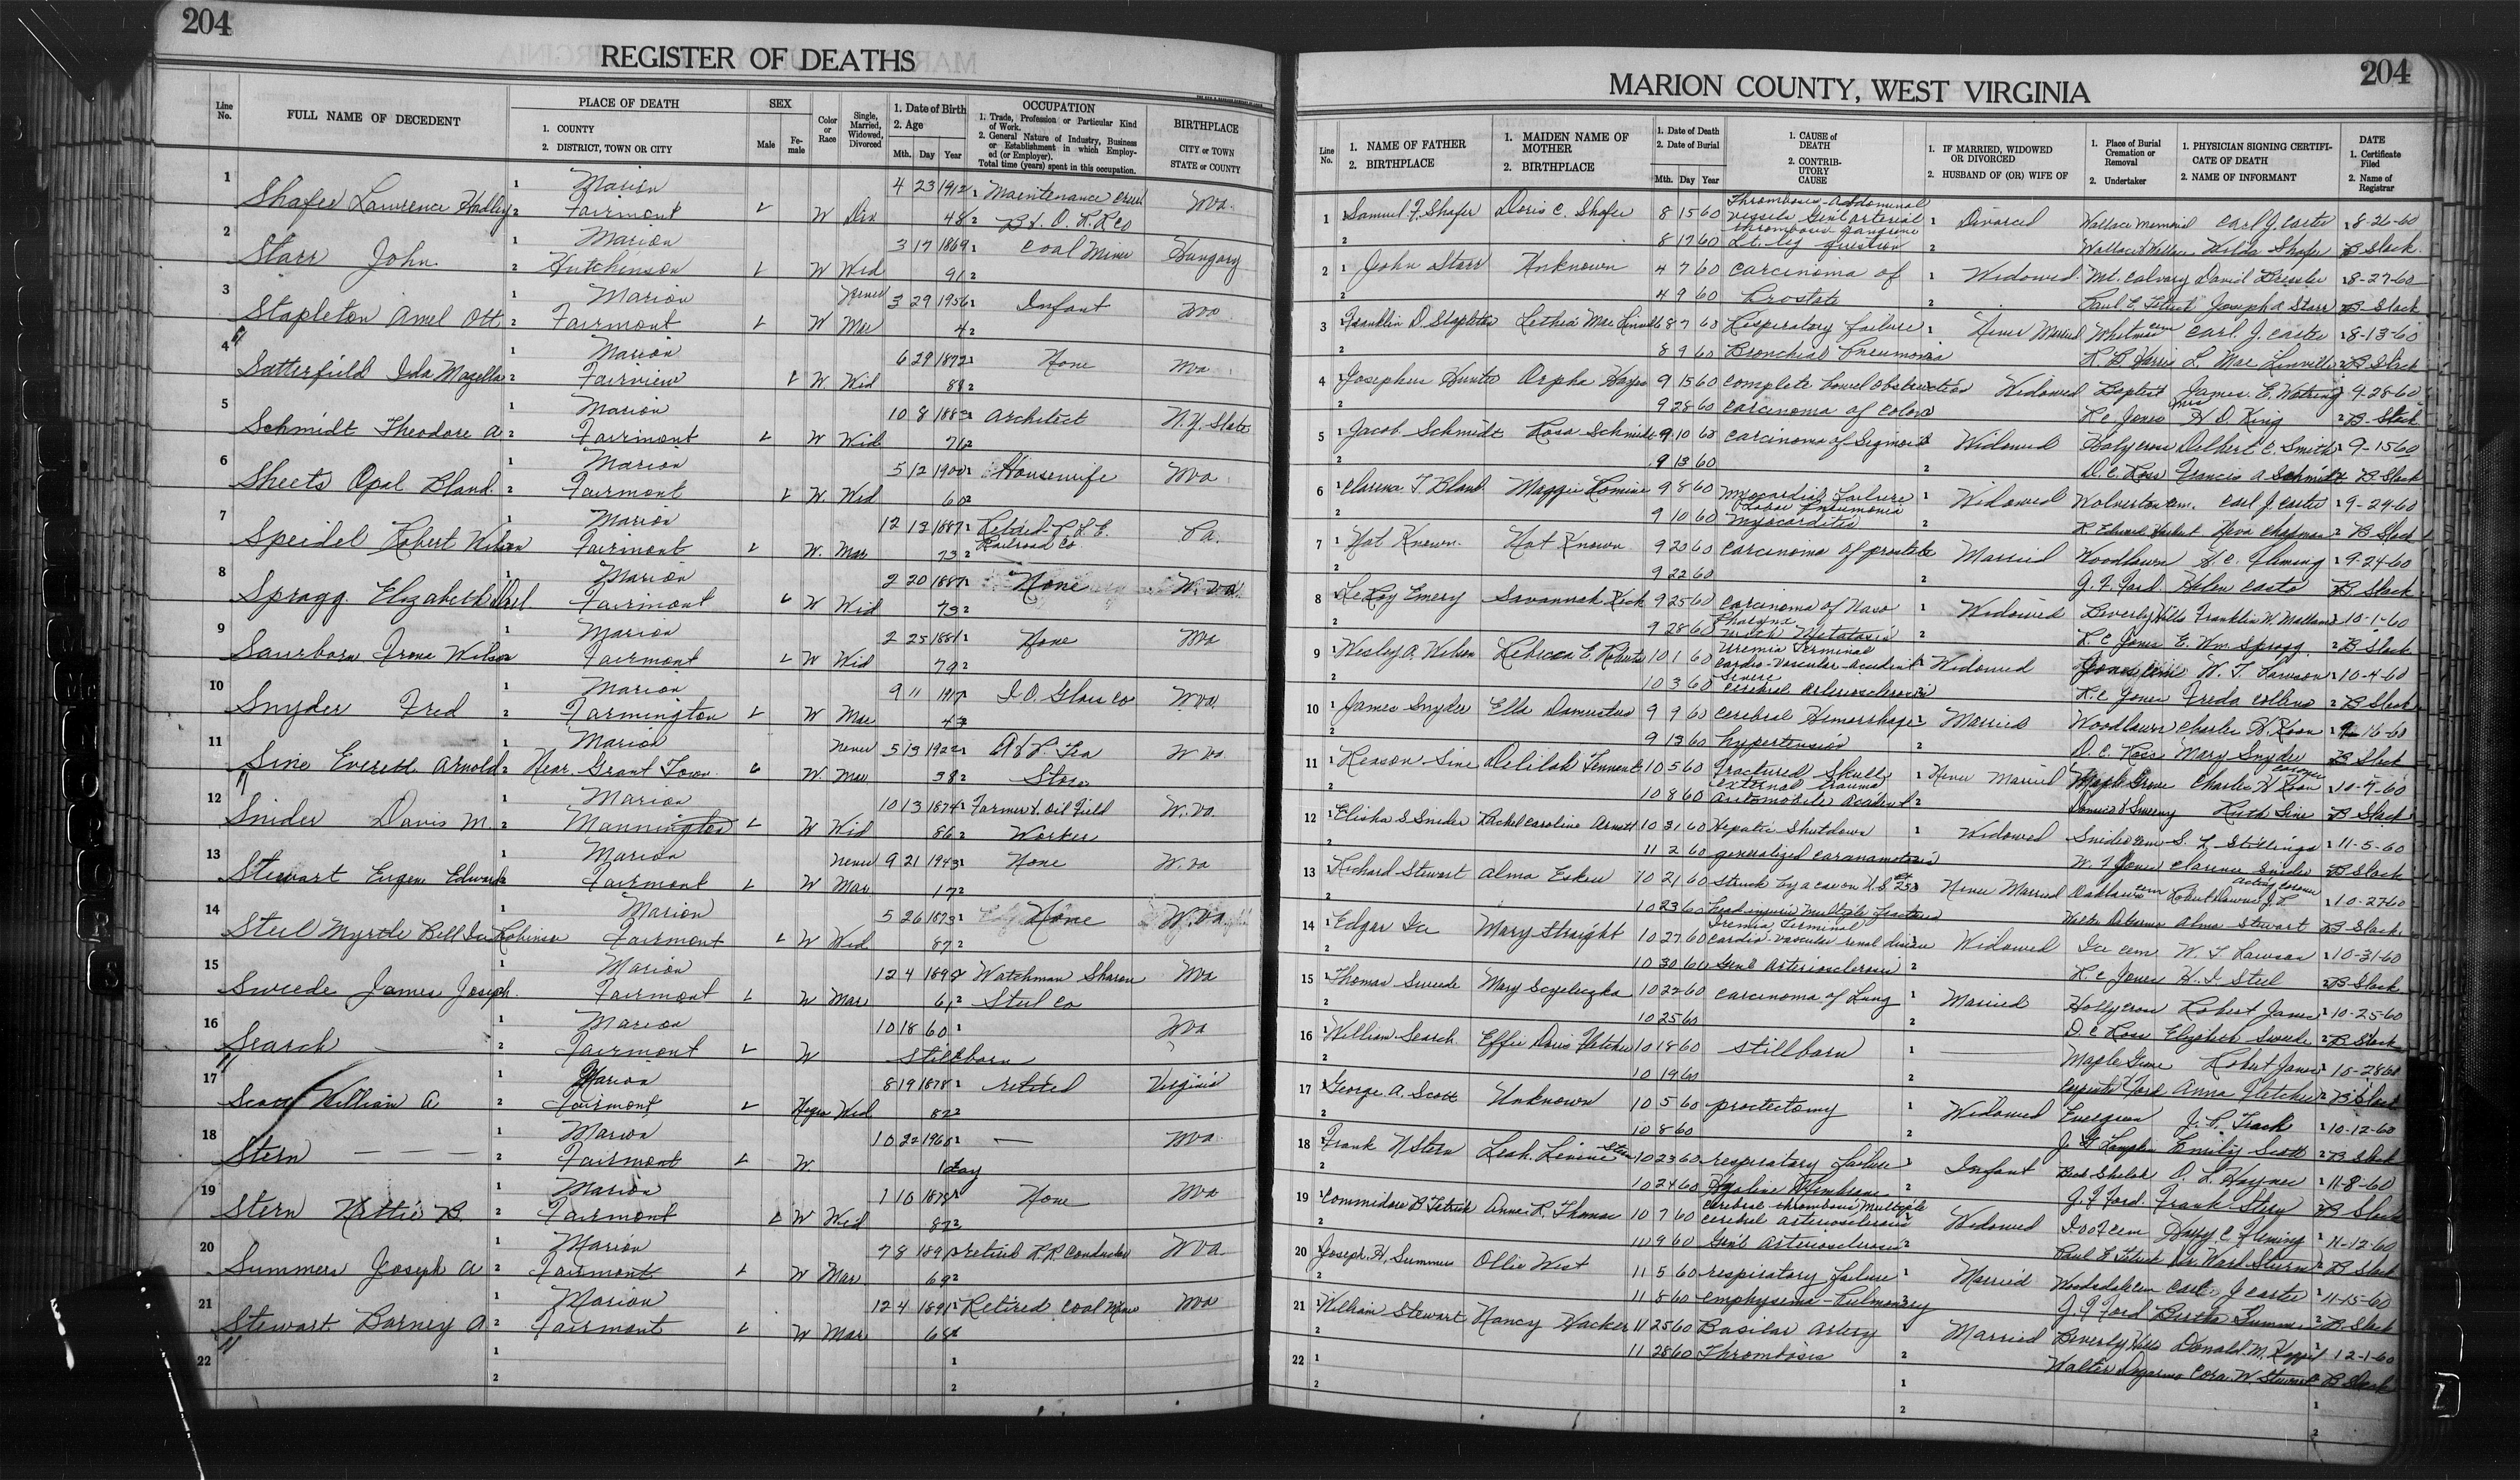 204
REGISTER OF DEATHS
Line No.
FULL NAME OF DECEDENT
PLACE OF DEATH
1. COUNTY
2. DISTRICT, TOWN OR CITY
SEX
Male
Fe-male
Color or Race
Single, Married, Widowed, Divorced
1. Date of Birth
2. Age
Mth. Day Year
OCCUPATION
1. Trade, Profession or Particular Kind of Work.
2. General Nature of Industry, Business or Establishment in which Employ-ed (or Employer).
Total time (years) spent in this occupation.
BIRTHPLACE
CITY or TOWN
STATE or COUNTY
1 Shafer Lawrence Hadley 1 Marion 4 23 1912 1 Maintenance Crew Wva.
2 Fairmont W Div 48 2 B & O. R.R Co
2 Starr John 1 Marion 3 17 1869 1 Coal Miner Hungary
2 Hutchinson W Wid 91 2
3 Stapleton Amel Ott 1 Marion Never 3 29 1956 1 Infant Wva
2 Fairmont W Mar 4 2
4 Satterfield Ida Magella 1 Marion 6 29 1872 1 None Wva
2 Fairview W Wid 88 2
5 Schmidt Theodore A 1 Marion 10 8 1883 1 Architect N.Y. State
2 Fairmont W Wid 76 2
6 Sheets Opal Bland. 1 Marion 5 12 1900 1 Housewife Wva
2 Fairmont W Wid 60 2
7 Speidel Robert Wilson 1 Marion 12 13 1887 1 Retired
Fairmont W. Mar 73 2 Railroad Co Pa.
8 Spragg Elizabeth 1 Marion 2 20 1887 1 None W. Va
Fairmont W Wid 73 2
9 Saurborn Irene Wilson 1 Marion 2 25 1881 1 None Wva
Fairmont W Wid 79 2
10 Snyder Fred 1 Marion 9 11 1917 1 I.O. Glass Co Wva
2 Farmington W Mar 43
11 Sine Everett Arnold 1 Marion Never 5 13 1922 1 A & P. Tea W va
2 Near Grant Town W Mar 38 2 Store
12 Snider Davis M. 1 Marion 10 13 1874 1 Farmer & Oil Field W. Va.
2 Mannington W Wid 86 2 Worker
13 Stewart Eugene Edward 1 Marion Never 9 21 1943 1 None W. va
Fairmont W Mar 17 2
14 Steel Myrtle Bell Ice Robinson 1 Marion 5 26 1873 1 None W. va
Fairmont W Wid 87 2
15 Swiede James Joseph. 1 Marion 12 4 Watchman Sharon Wva
Fairmont W Mar 61 2 Steel Co
16 Search 1 Marion 10 18 60 1 Wva
2 Fairmont W Stillborn
17 Scott William A 1 Marion 8 19 1878 1 retired Virginia
2 Fairmont Negro Wid 82 2
18 Stern — — — 1 Marion 10 22 1960 1 — Wva
2 Fairmont W 1 day
19 Stern Nettie B. 1 Marion 1 10 None Wva
2 Fairmont W Wid 87 2
20 Summers Joseph A 1 Marion 7 8 retired R.R. Conductor Wva
2 Fairmont W Mar 69 2
21 Stewart Barney A 1 Marion 12 4 1891 Retired Coal Miner Wva
2 Fairmont W Mar 68
22 1 1
2 2
204
MARION COUNTY, WEST VIRGINIA
Line No.
1. NAME OF FATHER
2. BIRTHPLACE
1. MAIDEN NAME OF MOTHER
2. BIRTHPLACE
1. Date of Death
2. Date of Burial
Mth. Day Year
1. CAUSE of DEATH
2. CONTRIB-UTORY CAUSE
1. IF MARRIED, WIDOWED OR DIVORCED
2. HUSBAND OF (OR) WIFE OF
1. Place of Burial Cremation or Removal
2. Undertaker
1. PHYSICIAN SIGNING CERTIFI-CATE OF DEATH
2. NAME OF INFORMANT
DATE
1. Certificate Filed
2. Name of Registrar
1 Samuel F. Shafer Doris C. Shafer 8 15 60 Thrombosis-Abdominal vessels Genl arterial 1 Divorced Wallace Memorial Carl J. Carter 8-26-60
2 8 17 60 thrombosis gangrene Lt. leg 2 Wallace & Wallace Hilda Shafer B Slack.
2 John Starr Unknown 4 7 60 Carcinoma of 1 Widowed Mt. Calvary David Bressler 8-27-60
2 4 9 60 Prostate 2 Paul E. Fetrick Joseph A Starr B Slack
3 Franklin D Stapleton Lethia Mae Linville 8 7 60 Respiratory failure 1 Never Married Whetzel Cem Carl J. Carter 8-13-60
2 8 9 60 Bronchial Pneumonia R. B Harris L. Mae Linville B Slack
4 Josephus Hunter Orpha Hayes 9 15 60 Complete bowel obstruction Widowed Baptist James E. Watring 9-28-60
2 9 28 60 Carcinoma of colon R. C Jones Mrs H D King B Slack
5 Jacob Schmidt Rosa Schmidt 9 10 60 Carcinoma of Sigmoid Widowed Holy Cross Delbert C. Smith 9-15 60
2 9 13 60 D. C. Ross Francis A Schmidt B Slack
6 Clarence T. Bland Maggie Romine 9 8 60 Myocardial failure Lobar Pneumonia 1 Widowed Wolverton Cem. Carl J. Carter 9-24-60
2 9 10 60 Myocarditis 2 Neva Chapman B Slack
7 Not Known. Not Known 9 20 60 Carcinoma of prostate Married Woodlawn H. C. Fleming 9-24-60
2 9 22 60 2 J. F. Ford Helen Casto B Slack
8 LeRoy Emery Savannah Rich 9 25 60 Carcinoma of Naso Pharynx 1 Widowed Beverly Hills Franklin W. Mallamo 10-1-60
2 9 28 60 with Metatasis 2 R. C Jones E. Wm. Spragg. B Slack
9 Wesley A. Wilson Rebecca E. Roberts 10 1 60 Uremia Terminal Cardio-Vascular-Accident Widowed Jones Cem W. T. Lawson 10-4-60
2 10 3 60 Severe Cerebral Arteriosclerosis R. C Jones Freda Collins B Slack
10 James Snyder Ella 9 9 60 Cerebral Hemorrhage Married Woodlawn Charles H. Koon 16-60
2 9 13 60 hypertension 2 D. C. Ross Mary Snyder B Slack
11 Reason Sine Delilah Tennant 10 5 60 fractured Skull external trauma 1 Never Married Maple Grove Charles H Koon Coroner
2 10 8 60 automobile accident 2 Ruth Sine B Slack
12 Elisha S Snider Rachel Caroline Arnett 10 31 60 Hepatic Shutdown 1 Widowed Snider Cem S. L. Stallings 11-5-60
2 11 2 60 generalized W. F Jones Clarence Snider B Slack
13 Richard Stewart Alma Eskew 10 21 60 struck by a car on U.S. Rt 250 Never Married Oaklawn Cem Robert Downs Acting Coroner 10-27-60
2 10 23 60 head injuries Multiple fractures Alma Stewart B Slack
14 Edgar Ice Mary Straight 10 27 60 Uremia Terminal cardio-vascular renal disease Widowed Ice Cem W. T. Lawson 10-31-60
2 10 30 60 Genl Arteriosclerosis 2 R. C Jones H. I Steel B Slack
15 Thomas Swiede Mary 10 22 60 Carcinoma of Lung 1 Married Holly Cross Robert James 10-25-60
2 10 25 60 2 D C Ross Elizabeth Swiede B Slack
16 William Search. Effie Doris Fletcher 10 18 60 Stillborn 1 — Maple Grove Robert James 10-28 60
2 10 19 60 2 Carpenter & Ford Anna Fletcher B Slack
17 George A. Scott Unknown 10 5 60 proctectomy 1 Widowed Evergreen J. P. Trach 10-12-60
2 10 8 60 2 Emily Scott B Slack
18 Frank N Stern Leah Levine Stern 10 23 60 respiratory failure Infant Beth Sholak O. L. Haynes 11-8-60
2 10 24 60 Hyaline Membrane 2 J. F Ford. Frank Stern B Slack
19 Commidore B Fetrick Anne R. Thomas 10 7 60 cerebral thrombosis Multiple cerebral arteriosclerosis Widowed I O O F Cem Harry C Fleming 11-12-60
2 10 9 60 Gen'l Arteriosclerosis Paul E Fetrick Mrs Ward Sturm B Slack
20 Joseph H. Summers Ollie West 11 5 60 respiratory failure 1 Married Woodsdale Cem Carl J Carter 11-15-60
2 11 8 60 emphysema-Pulmonary J. F Ford Bertha Summers B. Slack
21 William Stewart Nancy Hacker 11 25 60 Basilar Artery Married Beverly Hills Donald M. 12-1-60
2 11 28 60 Thrombosis 2 Walter Degarmo Cora W. Stewart B Slack
22 1 1 1
2 2 2